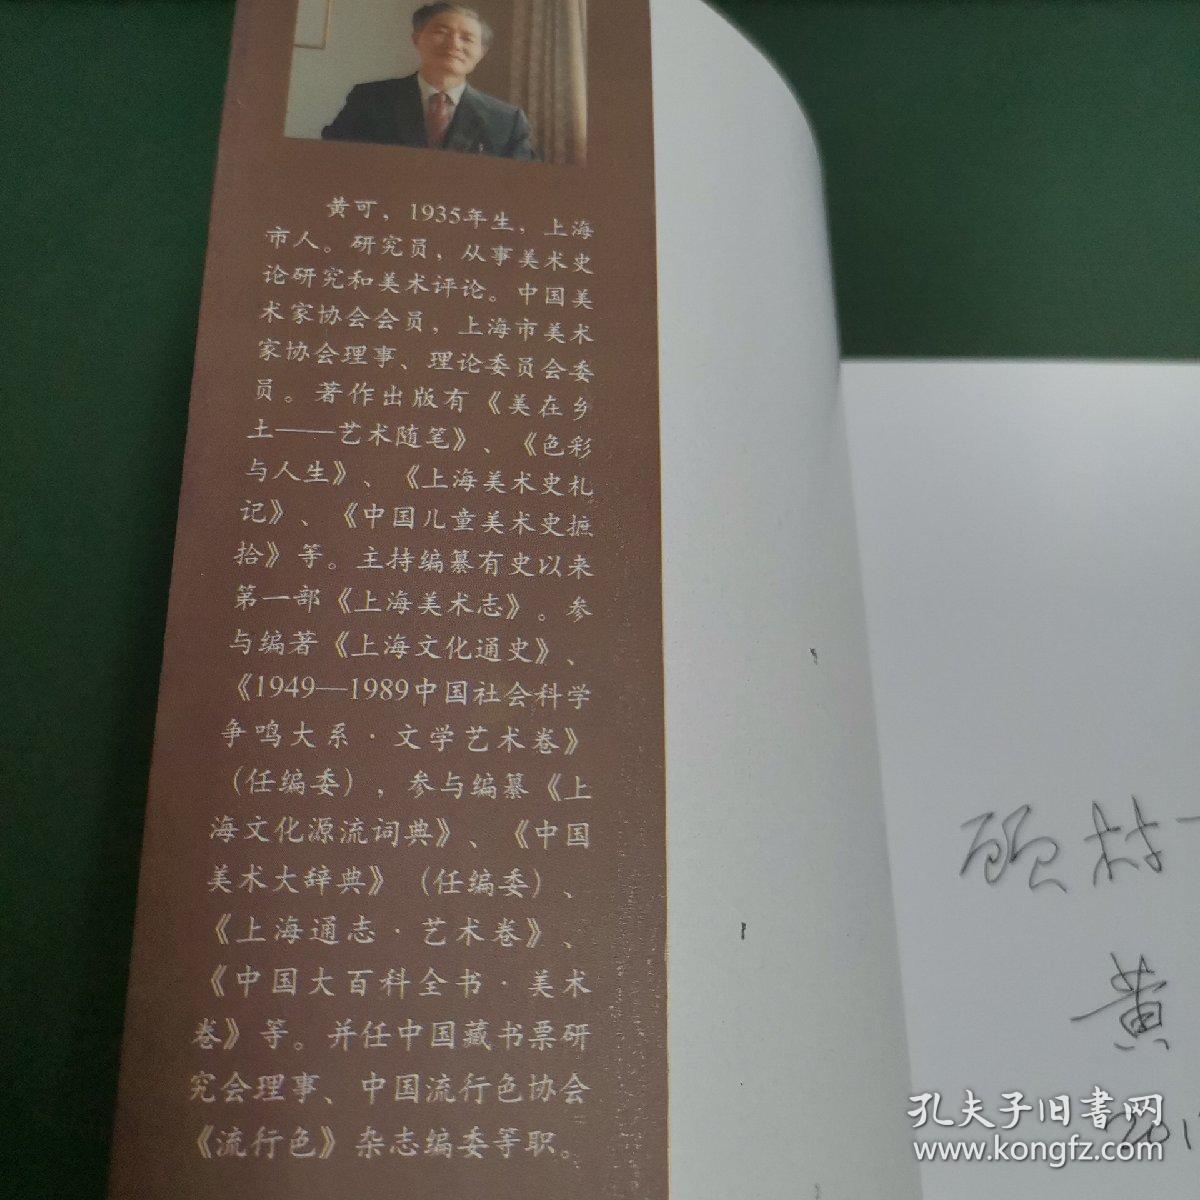 黄可，1935年生，上海
市人。研究员，从事美术史
论研究和美术评论。中国美
术家协会会员，上海市美术
家协会理事、理论委员会委
员。著作出版有《美在乡
土——艺术随笔》、《色彩
与人生》、《上海美术史札
记》、《中国儿童美术史摭
拾》等。主持编纂有史以来
第一部《上海美术志》。参
与编著《上海文化通史》、
《1949—1989中国社会科学
争鸣大系·文学艺术卷》
（任编委），参与编纂《上
海文化源流词典》、《中国
美术大辞典》（任编委）、
《上海通志·艺术卷》、
《中国大百科全书·美术
卷》等。并任中国藏书票研
究会理事、中国流行色协会
《流行色》杂志编委等职。
顾村
黄
201
孔夫子旧书网
www.kongfz.com